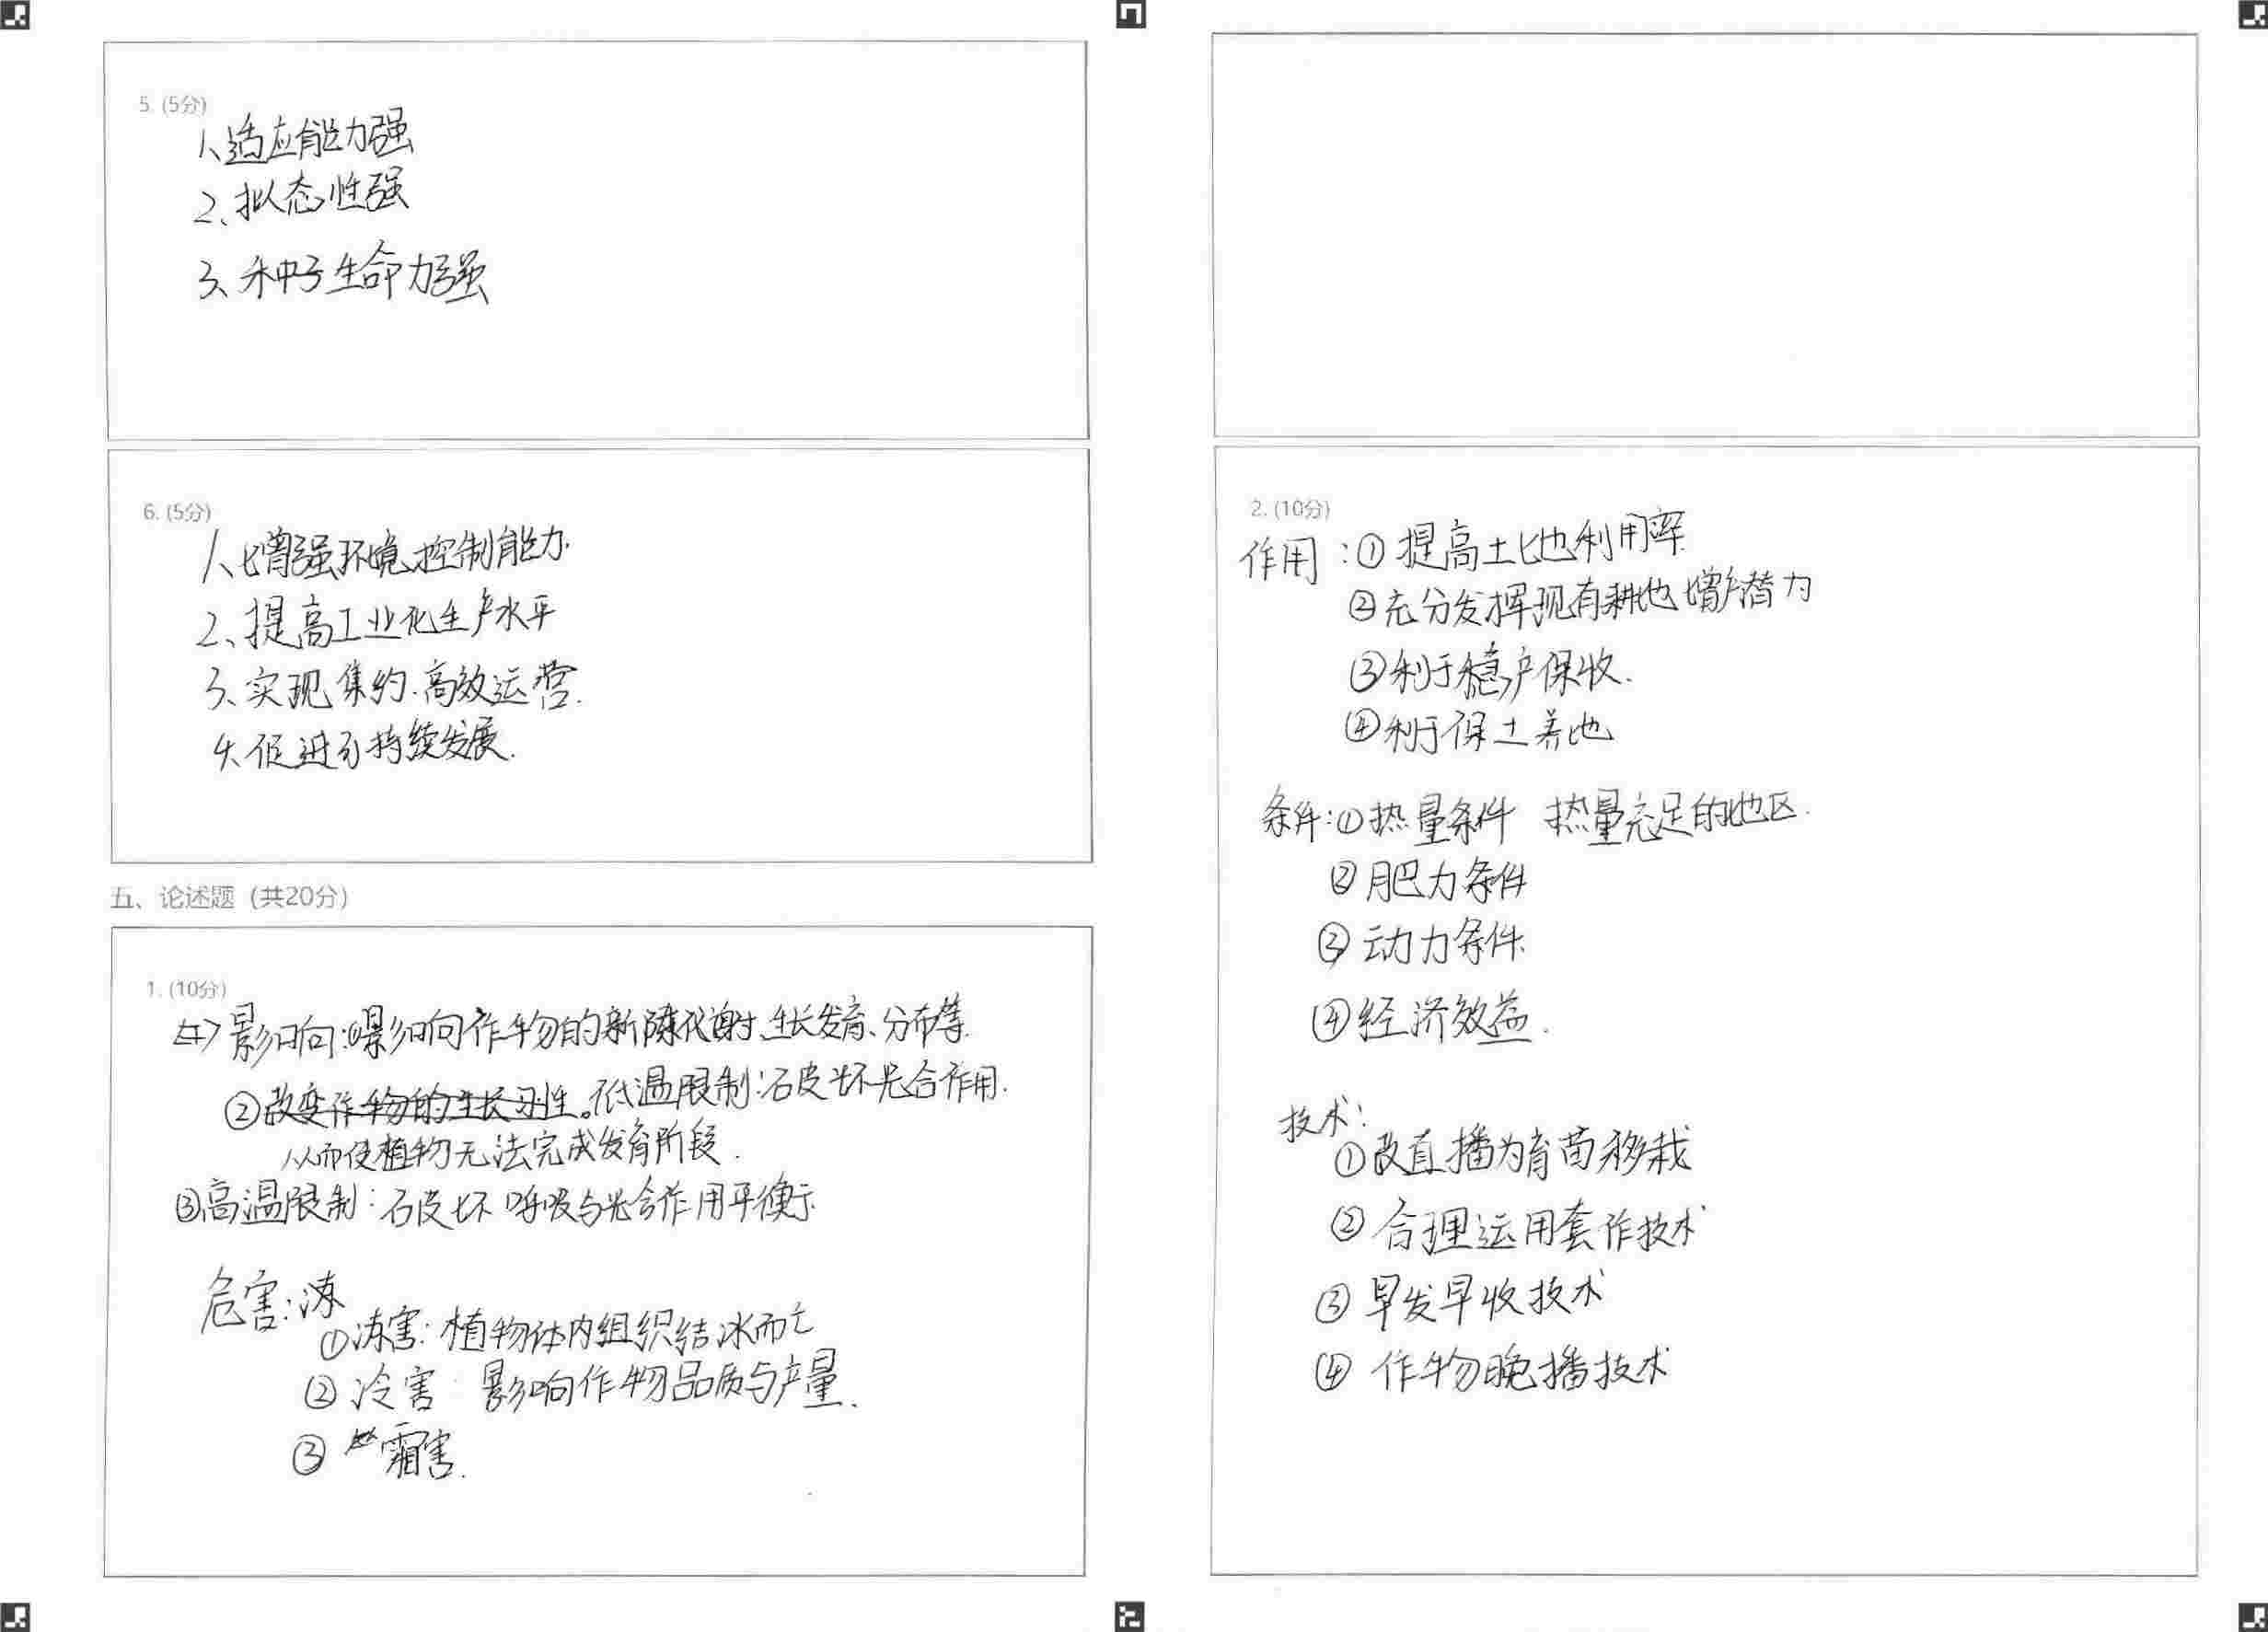 5. (5分)
1、适应能力强
2、拟态性强
3、种子生命力强
6. (5分)
1、增强环境控制能力.
2、提高工业化生产水平
3、实现集约.高效运营.
4、促进可持续发展.
五、论述题 (共20分)
1. (10分)
影响:①影响作物的新陈代谢、生长发育、分布等.
②改变作物的生长习性。低温限制:破坏光合作用.
从而使植物无法完成发育阶段.
③高温限制:破坏呼吸与光合作用平衡
危害:冻
①冻害:植物体内组织结冰而亡
②冷害 影响作物品质与产量.
③霜害.
2. (10分)
作用:①提高土地利用率
②充分发挥现有耕地增产潜力
③利于稳产保收.
④利于保土养地
条件:①热量条件 热量充足的地区.
②肥力条件
③动力条件.
④经济效益.
技术:
①改直播为育苗移栽
②合理运用套作技术
③早发早收技术
④作物晚播技术